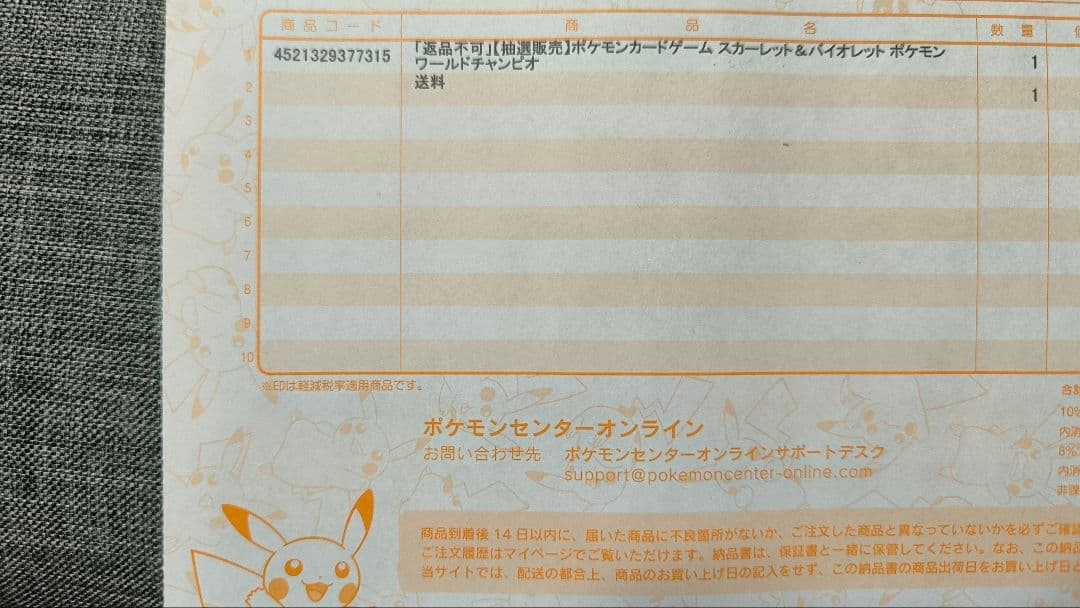 商品コード 商品名 数量
1 4521329377315 「返品不可」【抽選販売】ポケモンカードゲーム スカーレット＆バイオレット ポケモン 1
ワールドチャンピオ
2 送料 1
3
4
5
6
7
8
9
10
※印は軽減税率適用商品です。
合計
10%
内消
8%
内消
非課
ポケモンセンターオンライン
お問い合わせ先 ポケモンセンターオンラインサポートデスク
support@pokemoncenter-online.com
商品到着後 14 日以内に、届いた商品に不良箇所がないか、ご注文した商品と異なっていないかを必ずご確認
ご注文履歴はマイページでご覧いただけます。納品書は、保証書と一緒に保管してください。なお、この納品
当サイトでは、配送の都合上、商品のお買い上げ日の記入をせず、この納品書の商品出荷日をお買い上げ日と